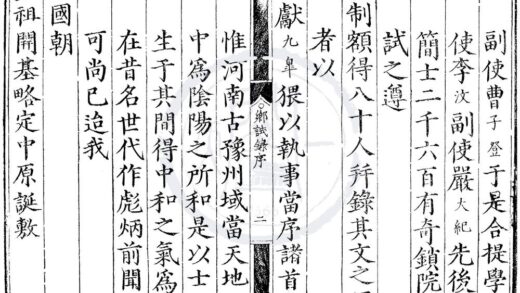 副使曹子登于是合提學
使李汶副使嚴大紀先後
簡士二千六百有奇鎖院
試之遵
制額得八十人錄其文之
者以
獻九皐猥以執事當序諸首
鄉試錄序
二
惟河南古豫州域當天地
中爲陰陽之所和是以士
生于其間得中和之氣爲
在昔名世代作彪炳前聞
可尚已迨我
國朝
祖開基略定中原誕敷